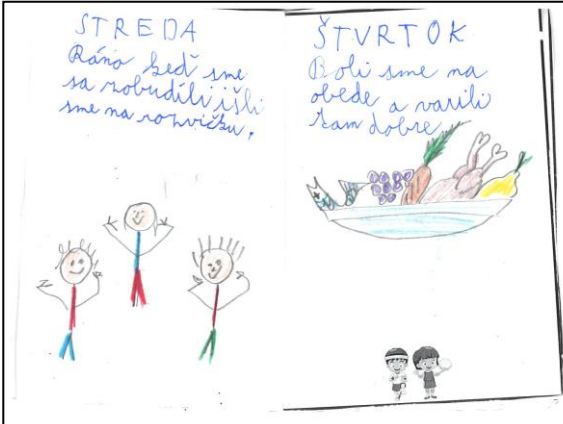 STREDA
Ráno keď sme
sa zobudili išli
sme na rozvičku.
ŠTVRTOK
Boli sme na
obede a varili
tam dobre